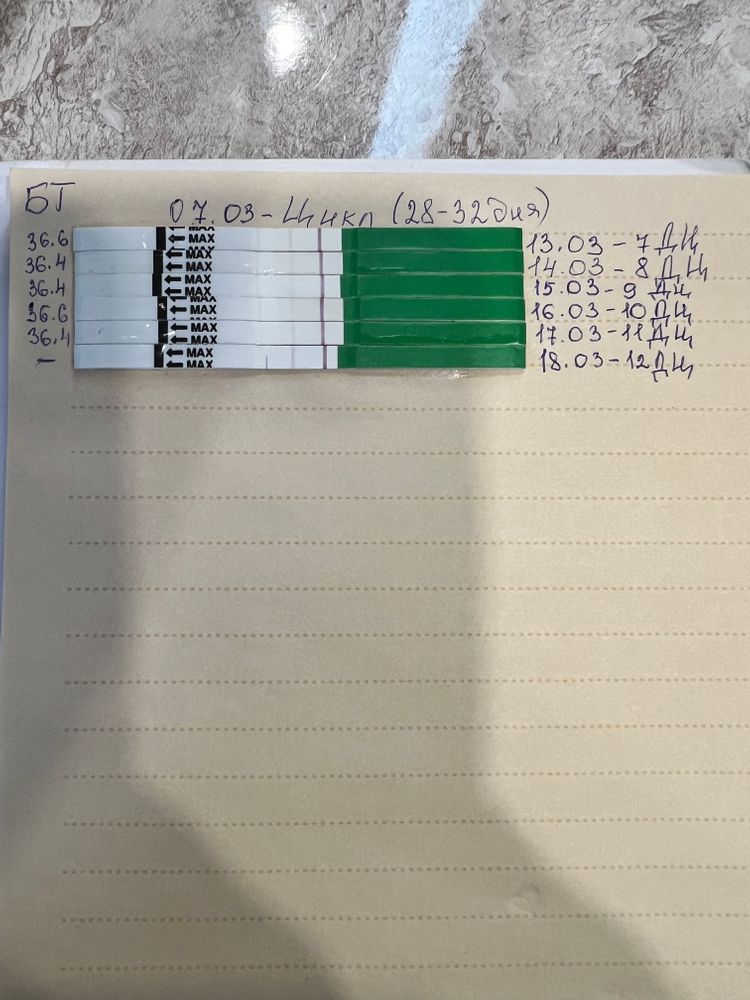 БТ
07.03-Цикл (28-32дня)
36.6 MAX MAX 13.03-7ДЦ
36.4 MAX 14.03-8ДЦ
36.4 MAX MAX 15.03-9ДЦ
36.6 MAX MAX 16.03-10ДЦ
36.4 MAX MAX 17.03-11ДЦ
- MAX MAX 18.03-12ДЦ